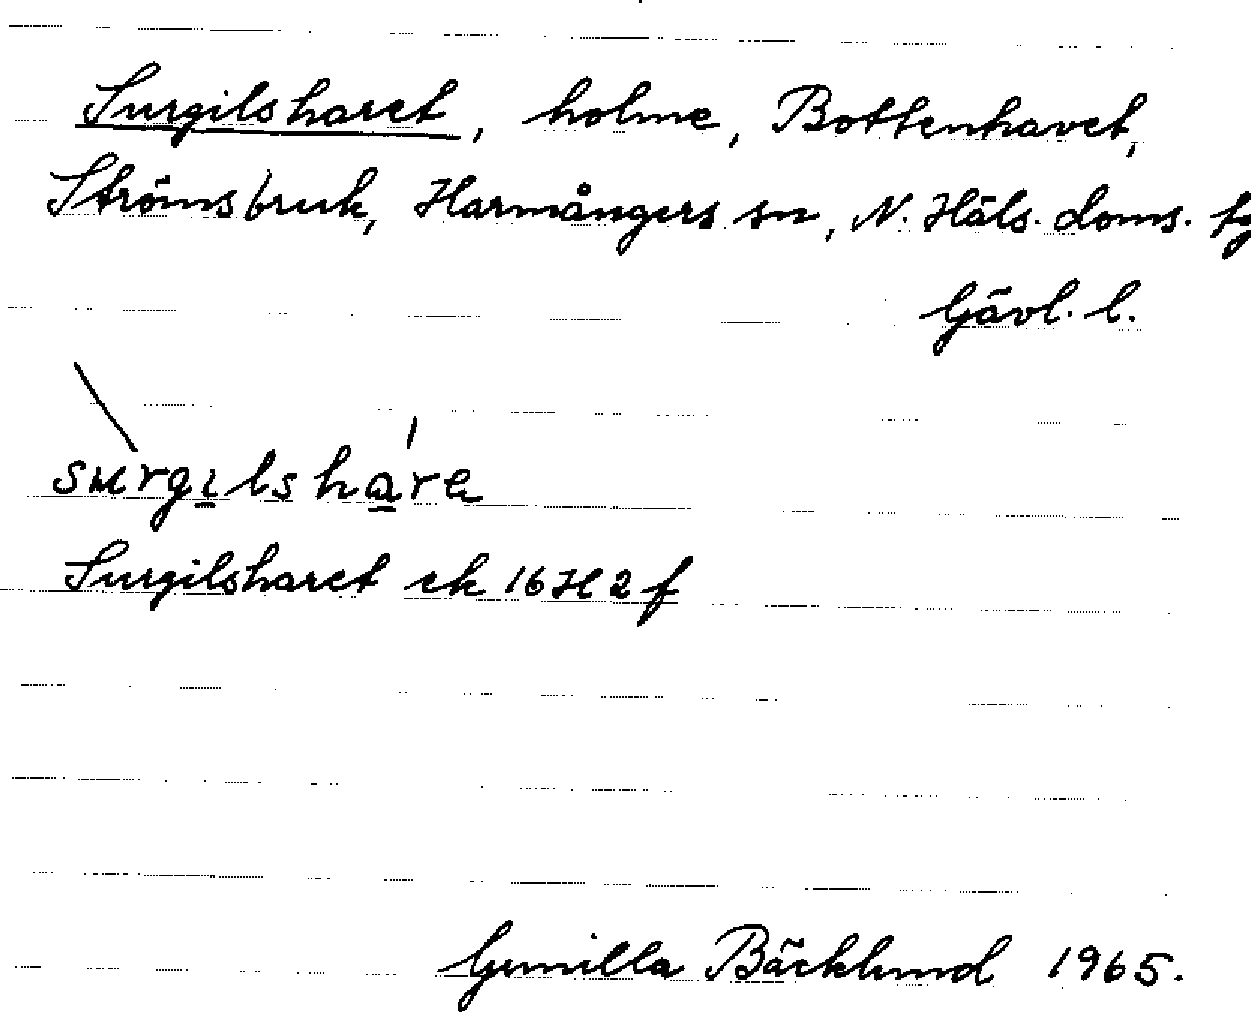 Surgilsharet, holme, Bottenhavet,
Strömsbruk, Harmångers sn, N. Häls. doms. tg
Gävl. l.
surgilshare
Surgilsharet ek 16H2f
Gunilla Bäcklund 1965.